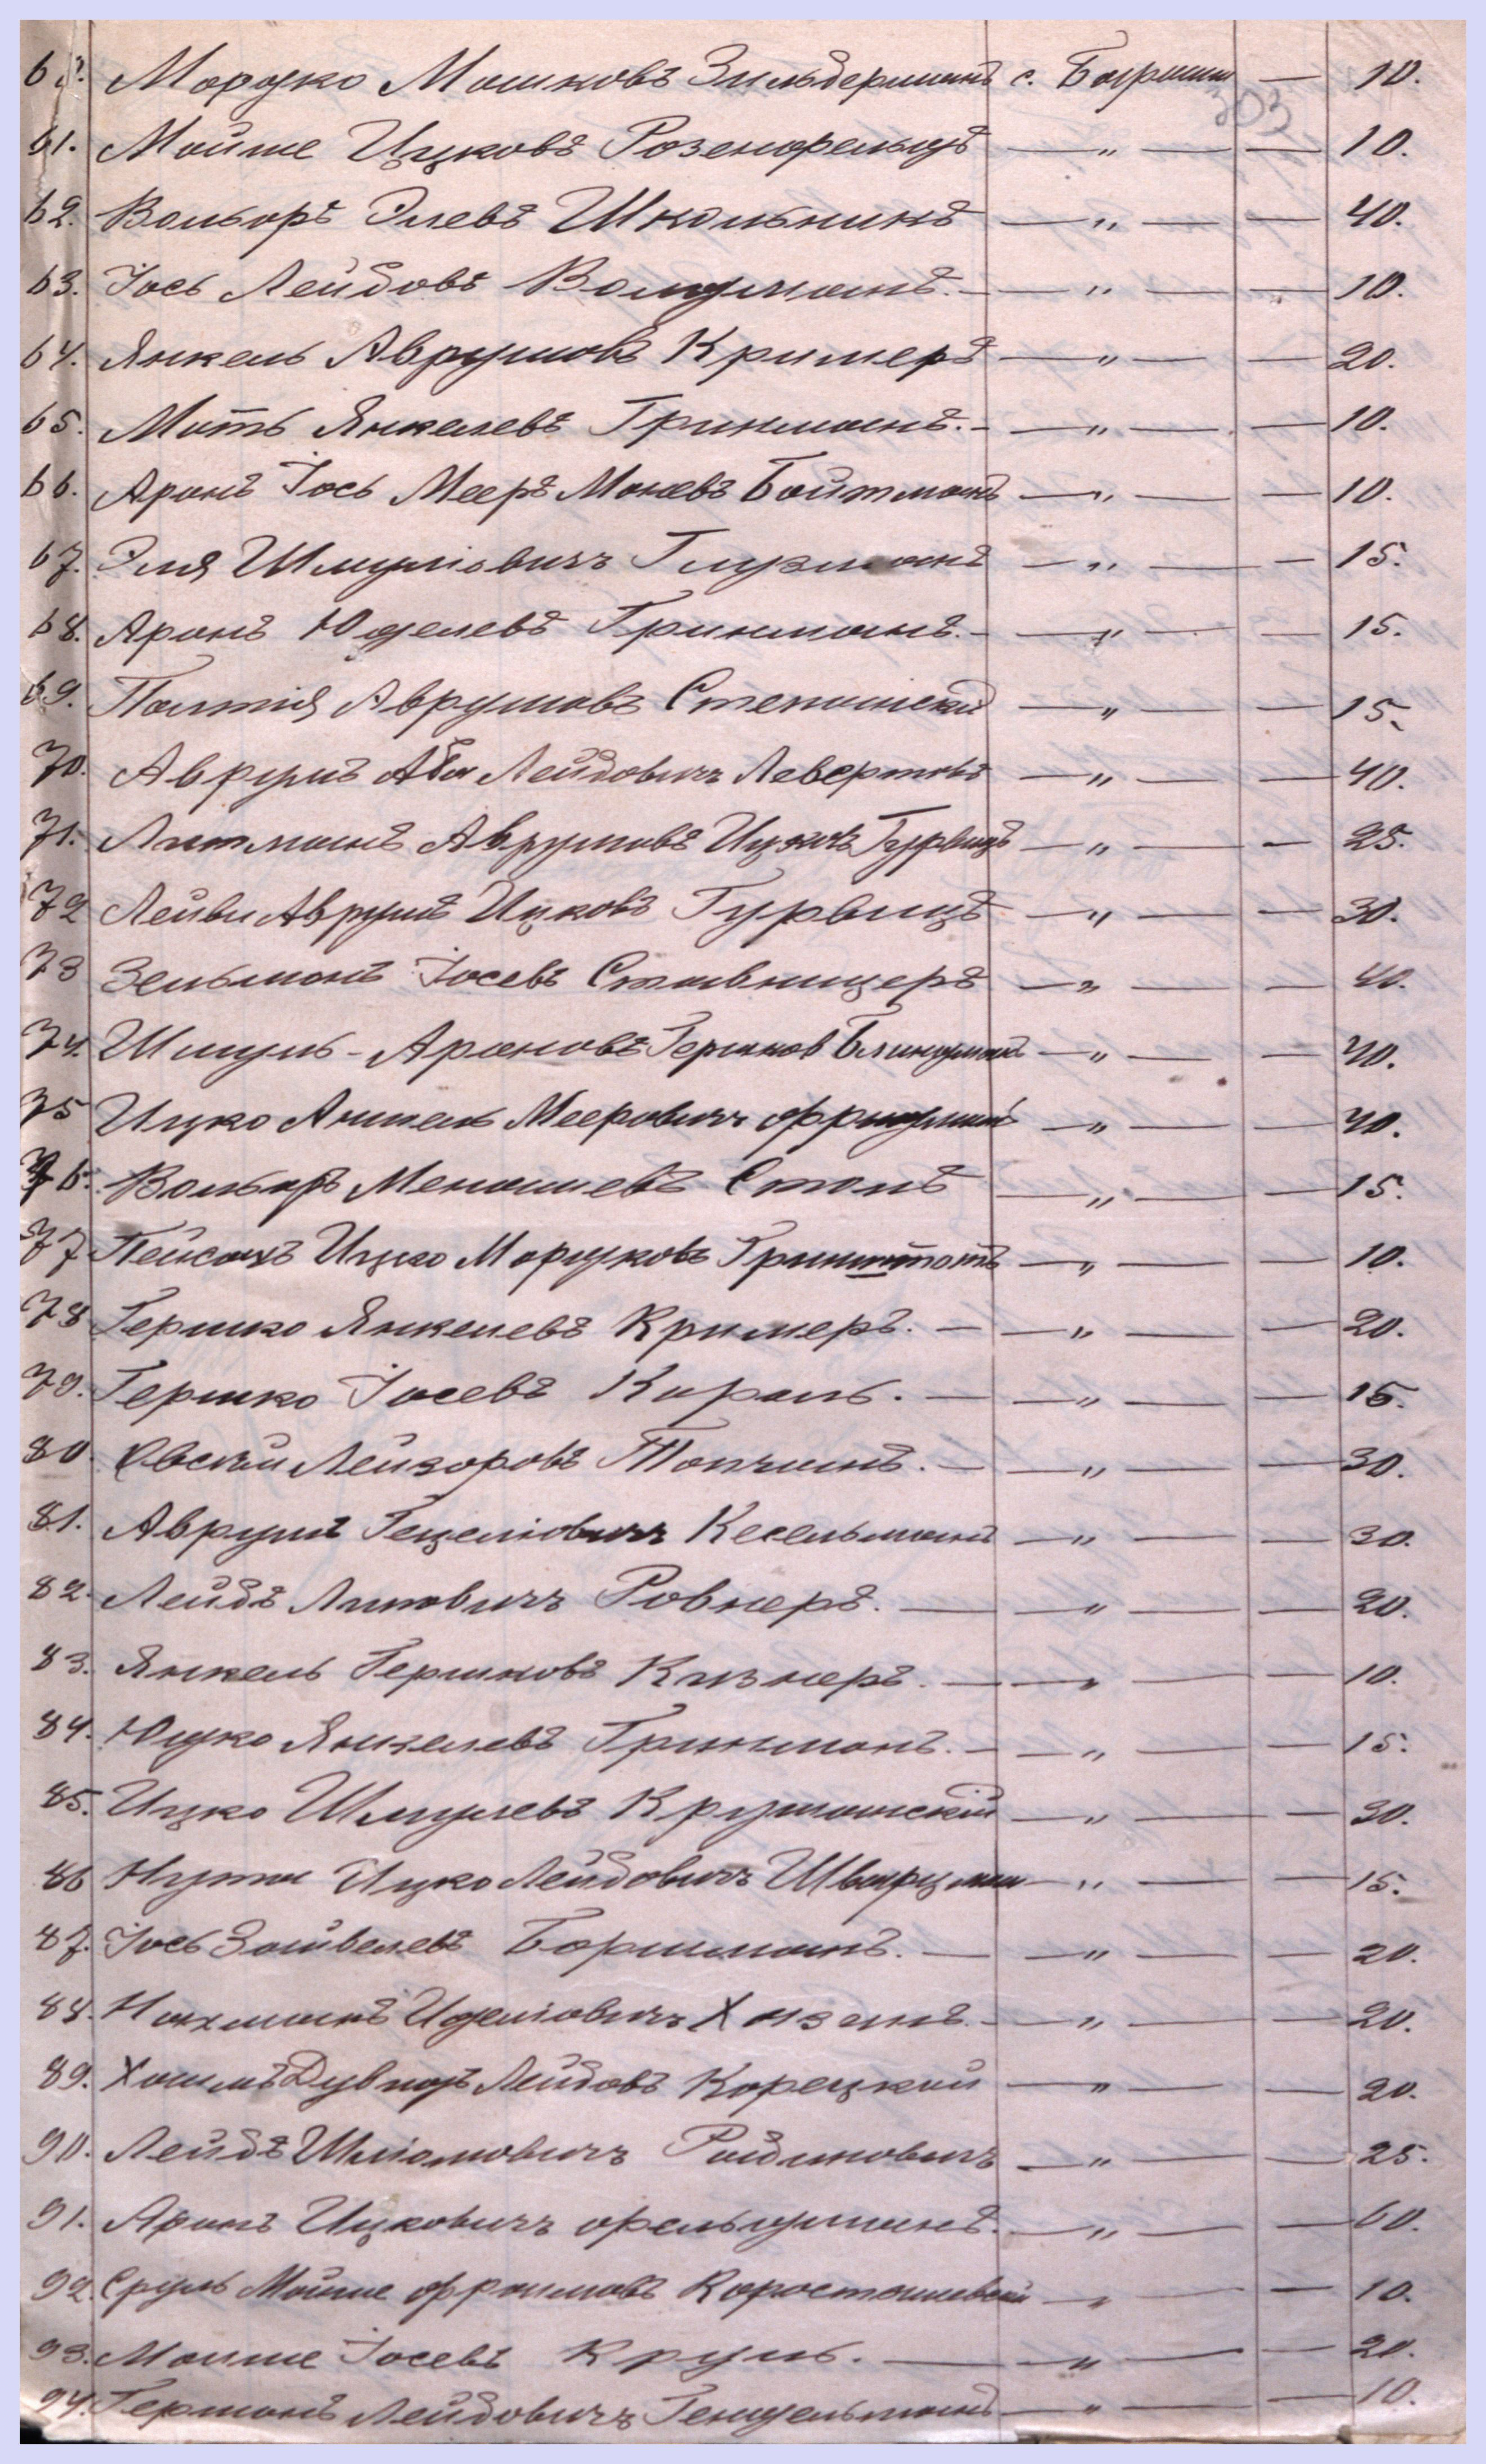 60. Мордко Мошковъ Зильберманъ с. Баграши — 10.
303
61. Мойше Ицковъ Розенфельдъ — " — — 10.
62. Вольфъ Элевъ Школьникъ — " — — 40.
63. Іось Лейбовъ Волдманъ. — " — — 10.
64. Янкель Аврумовъ Кримеръ — " — — 20.
65. Моть Янкелевъ Гринманъ. — " — — 10.
66. Аронъ Іось Мееръ Моневъ Бойтманъ — " — — 10.
67. Эля Шмуліовичъ Глузманъ — " — — 15.
68. Аронъ Юделевъ Гринманъ. — " — — 15.
69. Палтія Аврумовъ Степанскій — " — — 15.
70. Аврумъ Аба Лейбовичъ Левертовъ — " — — 40.
71. Литманъ Аврумовъ Ицковъ Гурвицъ — " — — 25.
72 Лейви Аврумъ Ицковъ Гурвицъ — " — — 30.
73 Зельманъ Іосевъ Ставницеръ — " — — 40.
74. Шмуль-Ароновъ Гершков Блиндманъ — " — — 40.
75 Ицко Аншель Мееровичъ Фридманъ — " — — 40.
76. Вольфъ Менашевъ Столъ — " — — 15.
77 Пейсахъ Ицко Мордковъ Гринштотъ — " — — 10.
78 Гершко Янкелевъ Кримеръ. — — " — — 20.
79. Гершко Іосевъ Кароль. — — " — — 15.
80. Овсѣй Лейзоровъ Топчинъ. — — " — — 30.
81. Аврумъ Гецеліовичъ Кесельманъ — " — — 30.
82. Лейбъ Липовичъ Ровнеръ. — — " — — 20.
83. Янкель Гершковъ Кизнеръ. — — " — — 10.
84. Юдко Янкелевъ Гринманъ. — — " — — 15.
85. Ицко Шмулевъ Крушанскій — " — — 30.
86 Нута Ицко Лейбовичъ Шварцман — " — — 15.
87. Іось Зайвелевъ Боришманъ. — — " — — 20.
88. Нахманъ Иделіовичъ Хазанъ. — " — — 20.
89. Хаимъ Дувидъ Лейбовъ Корецкій — " — — 20.
90. Лейбъ Шліомовичъ Рабиновичъ — " — — 25.
91. Аронъ Ицковичъ Фельдманъ. — " — — 60.
92. Сруль Мойше Фраимовъ Коростошевскій — " — — 10.
93. Моише Іосевъ Круль. — — " — — 20.
94. Германъ Лейбовичъ Гендельманъ — " — — 10.